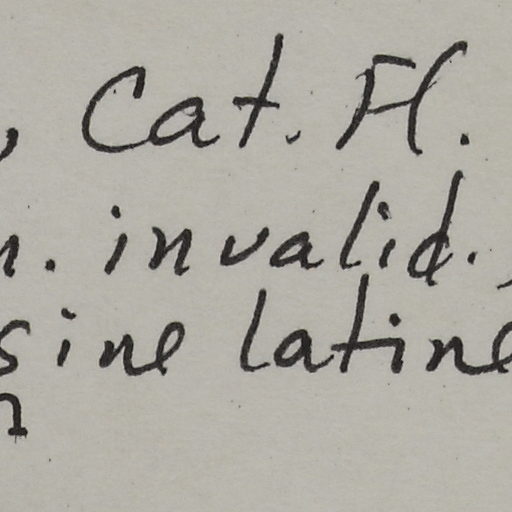 , Cat. Fl.
n. invalid.,
sine latine
n